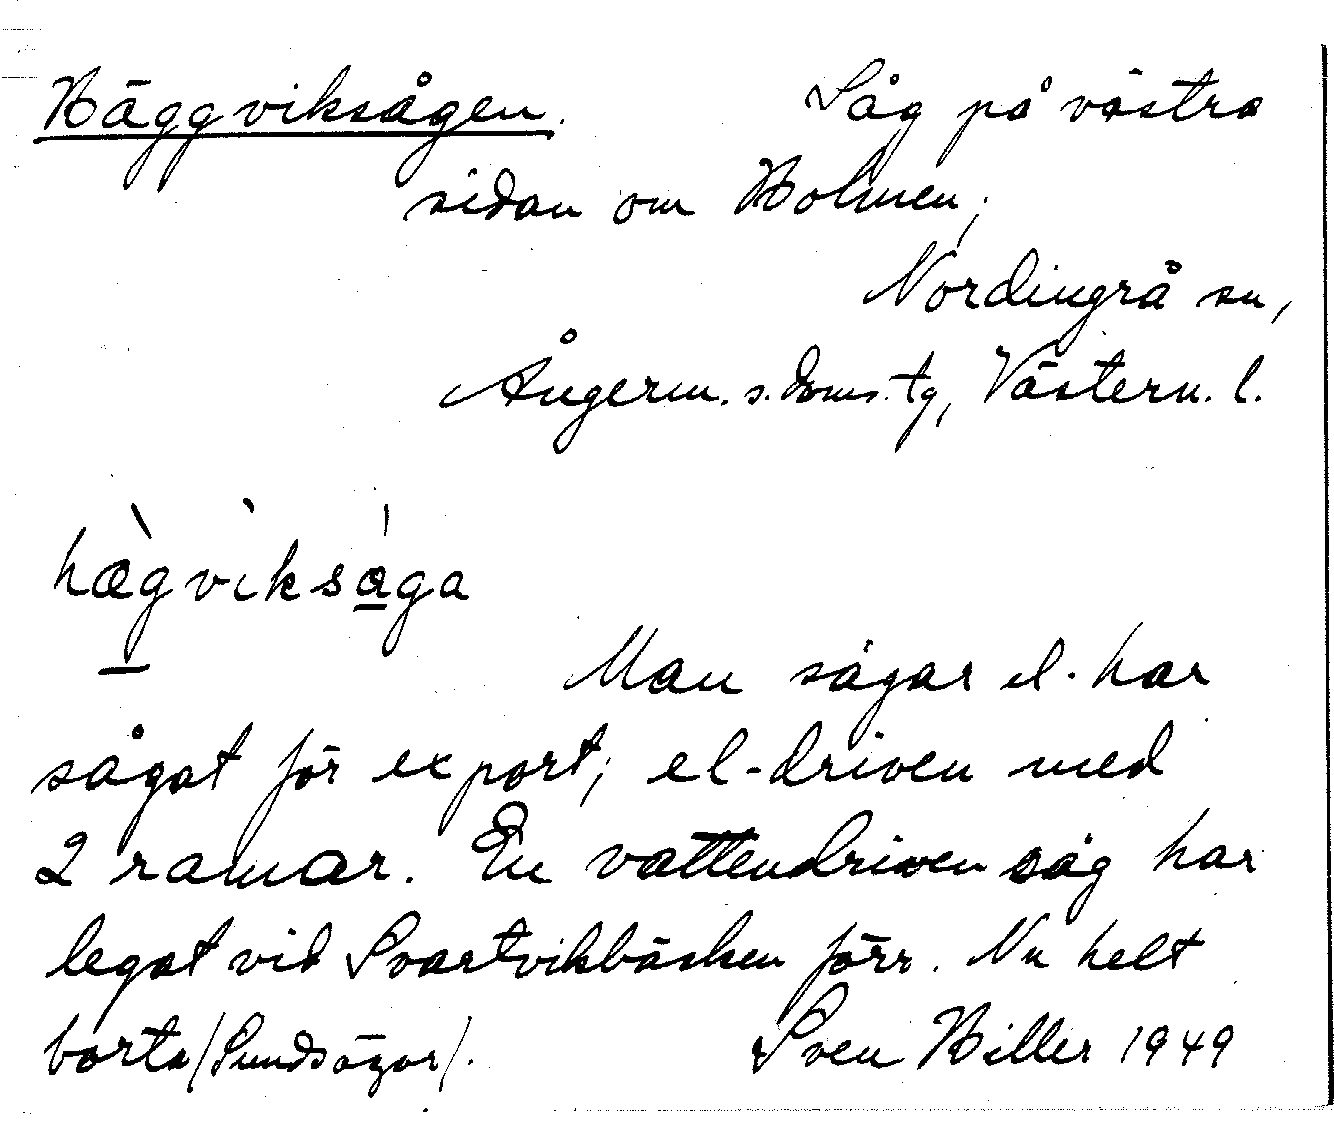 Häggviksågen. Såg på västra
sidan om Holmen,
Nordingrå sn,
Ångerm. s. doms. tg, Västern. l.
hægviksåga
Man sågar el. har
sågat för export; el-driven med
2 ramar. En vattendriven såg har
legat vid Svartvikbäcken förr. Nu helt
borta /Sundsågar/.
Sven Hiller 1949